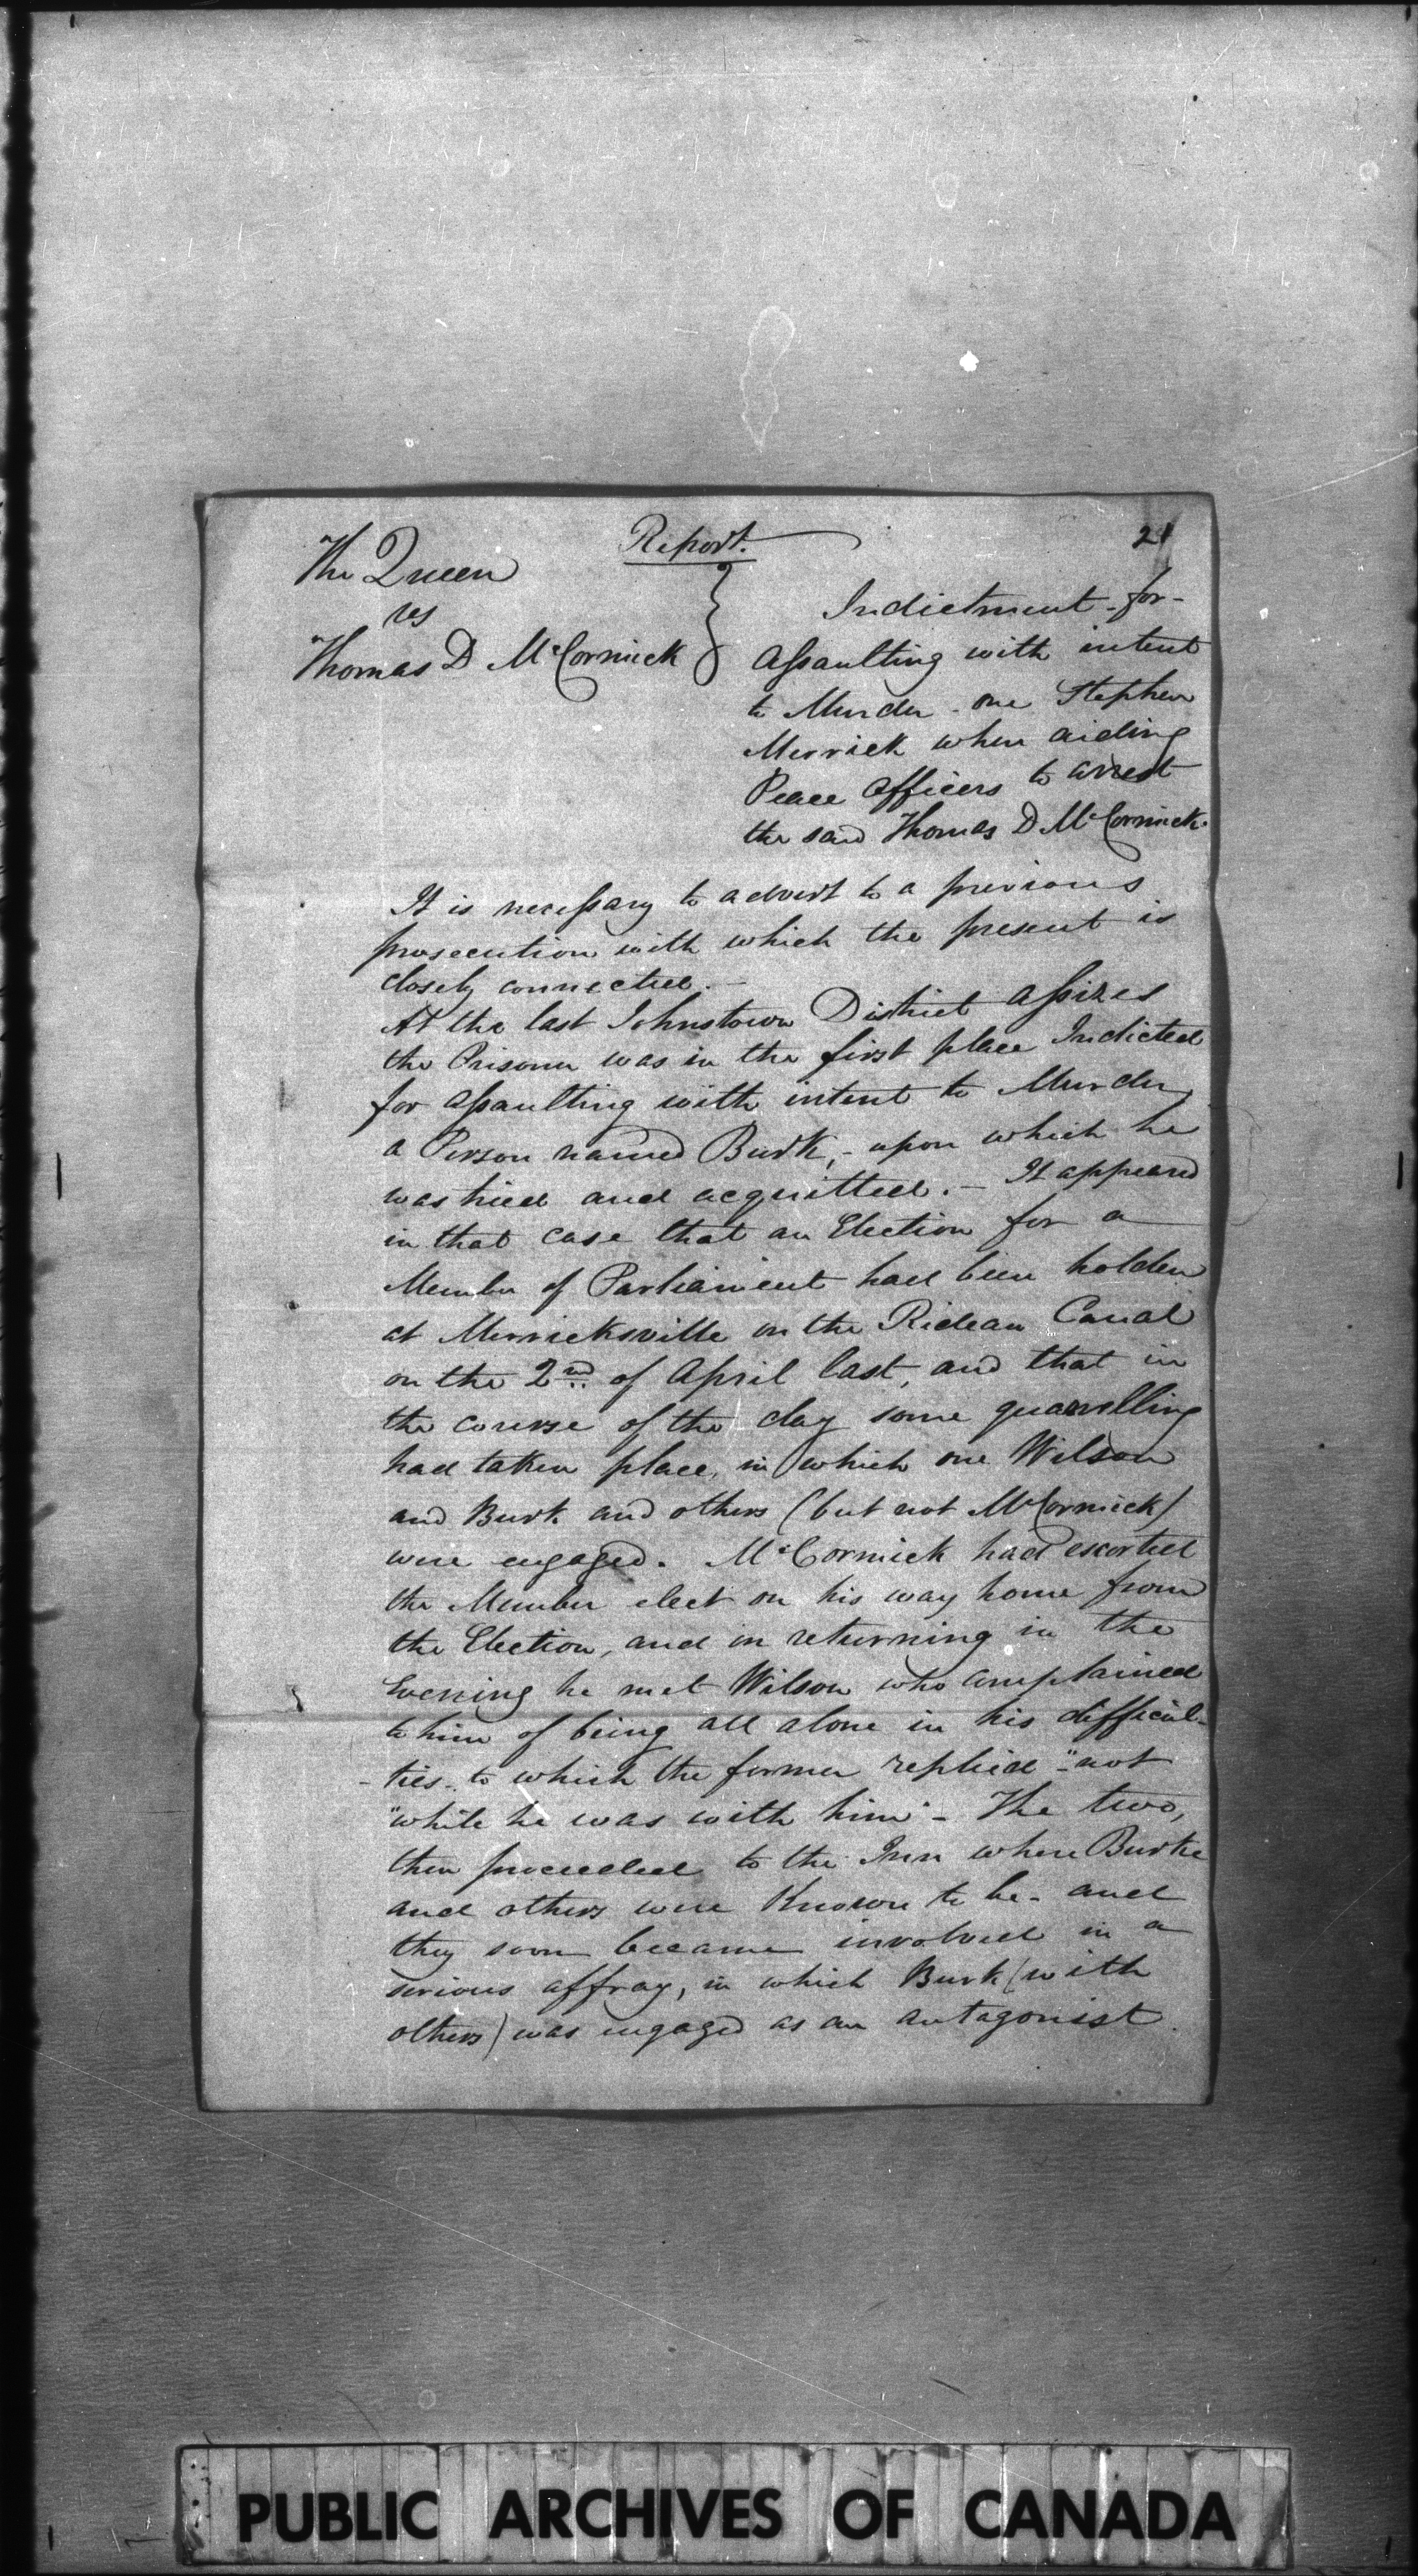 Report.
21
The Queen
vs
Thomas D McCormick
Indictment - for -
Assaulting with intent
to Murder - one Stephen
Merrick when aiding
Peace officers to arrest
the said Thomas D McCormick.
It is necessary to advert to a previous
prosecution with which the present is
closely connected. -
At the last Johnstown District Assizes
the Prisoner was in the first place Indicted
for assaulting with intent to Murder
a Person named Burk, - upon which he
was tried and acquitted. - It appeared
in that case that an Election for a
Member of Parliament had been holden
at Merricksville on the Rideau Canal
on the 2nd of April last, and that in
the course of the day some quarrelling
had taken place, in which one Wilson
and Burk and others (but not McCormick)
were engaged. McCormick had escorted
the Member elect on his way home from
the Election, and in returning in the
Evening he met Wilson who complained
to him of being all alone in his difficul-
- ties - to which the former replied - "not
"while he was with him" - The two,
then proceeded to the Inn where Burke
and others were Known to be - and
they soon became involved in a
serious affray, in which Burk (with
others) was engaged as an antagonist.
PUBLIC ARCHIVES OF CANADA